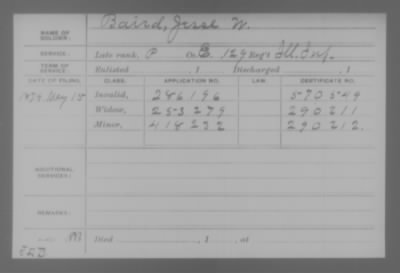 NAME OF SOLDIER: Baird, Jesse W.
SERVICE: Late rank, P Co. E. 129 Reg't Ill. Inf.
TERM OF SERVICE Enlisted , 1 Discharged , 1
DATE OF FILING. CLASS. APPLICATION NO. LAW. CERTIFICATE NO.
1879 May 15 Invalid, 286196 570549
Widow, 253279 290211
Minor, 418232 290212.
ADDITIONAL SERVICES:
REMARKS:
Died , 1 , at